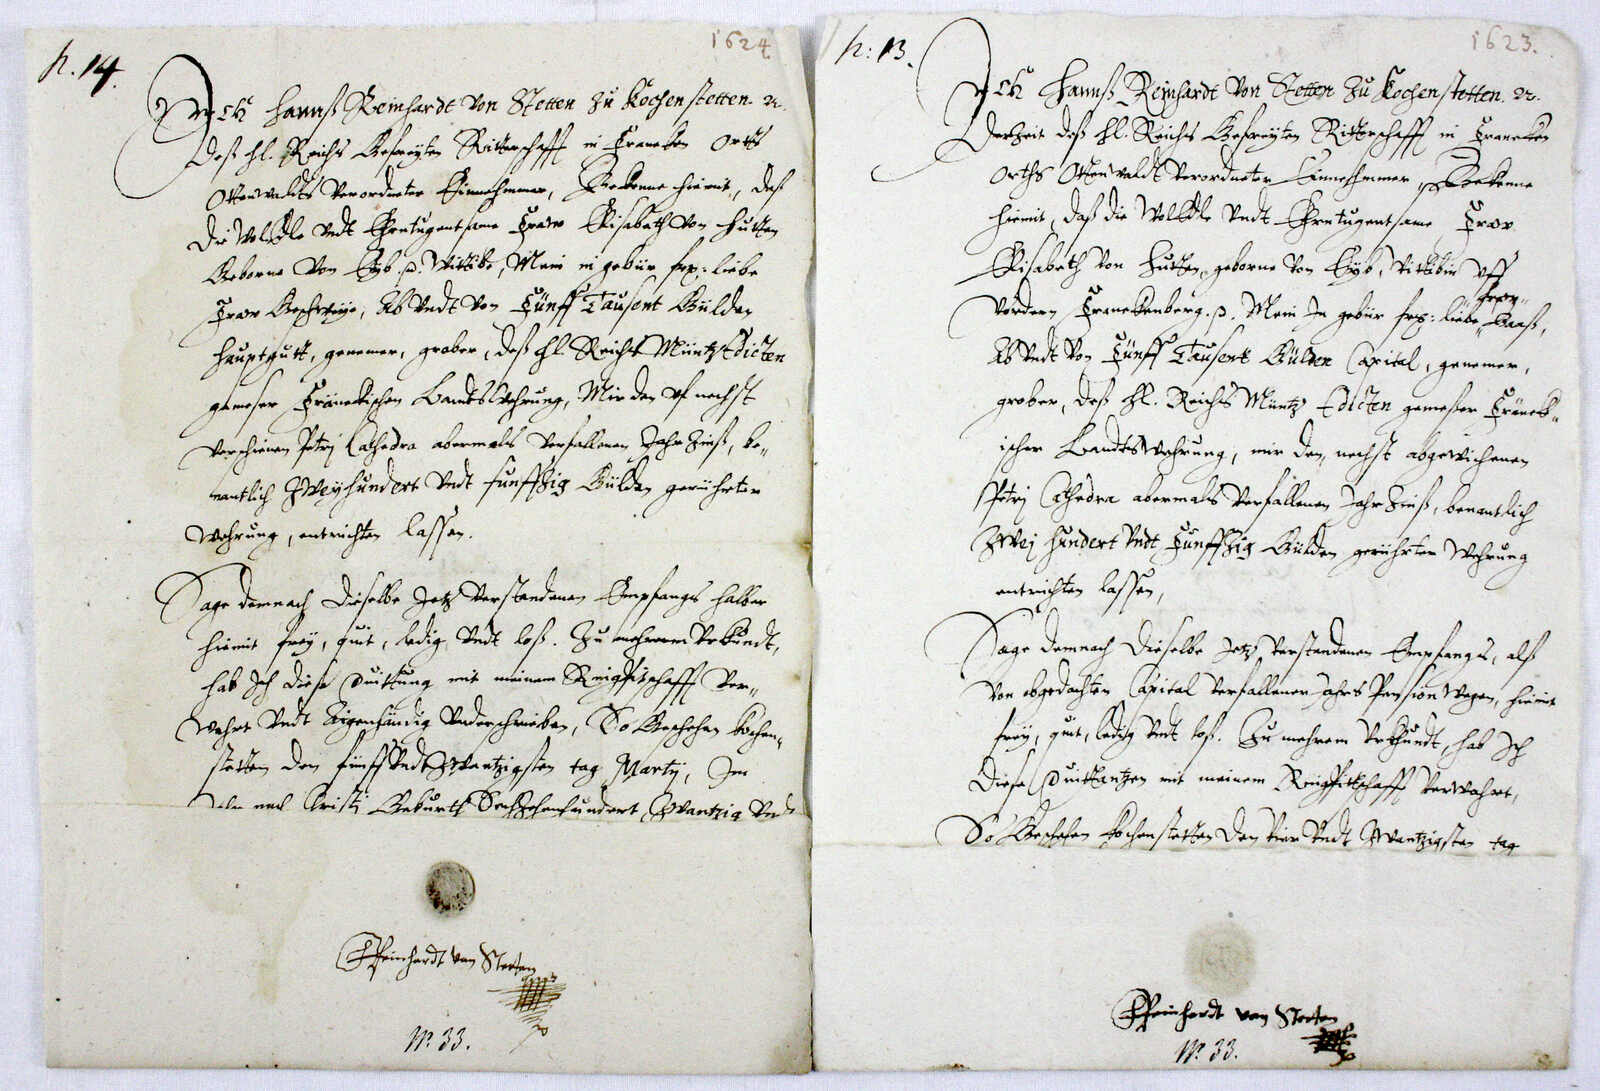 N. 14.
1624
Ich Hannß Reinhardt von Stetten zu Kochenstetten. ꝛc.
Deß hl. Reichs Befreyten Ritterschafft in Francken Orths
Ottenwaldts verordneter Einnehmer, Bekenne hiemit, daß
die WolEdle vndt Ehrntugentsame Fraw Elisabeth von Hutten
Geborne von Eyb. Wittibe, Mein in gebür frp: liebe
Fraw Geschweye, Ab vndt von Fünff Tausent Gülden
Hauptgutt, genemer, grober, deß hl. Reichs Müntz Edicten
gemeser Fränckischen Landts Wehrung, Mir den vf nechst
verschienen Petrj Cathedra abermals verfallenen Jahr Zinß, be-
nantlich Zweyhundert vndt funffzig Gülden gerührter
Wehrung, entrichten lassen.
Sage demnach Dieselbe Jetz verstandenen Empfangs halber
hiemit frey, quit, ledig vndt loß. Zu mehrerm Vrkundt,
hab Ich diese Quittung mit meinem Ringpitschafft ver-
wahrt vndt Eigenhändig vnderschrieben, So Geschehen Kochen-
stetten den fünff vndt Zwantzigsten tag Martij, Im
Jahr nach Christi Geburth Sechzehenhundert Zwantzig vndt
HReinhardt von Stetten
Nº. 33.
N: 13.
1623.
Ich Hannß Reinhardt von Stetten zu Kochenstetten. ꝛc.
Derzeit deß hl. Reichs Befreyten Ritterschafft in Francken
Orths Ottenwaldt verordneter Einnehmer, Bekenne
hiemit, daß die WolEdle vndt Ehrntugentsame Fraw
Elisabeth von Hutten, geborne von Eyb, Wittibin vff
Vordern Franckenberg. Mein In gebür frp: liebe Fraw Baaß,
Ab vndt von Fünff Tausent Gülden Capital, genemer,
grober, deß hl. Reichs Müntz Edicten gemeßer Fränck-
ischer Landts Wehrung, mir den, nechst abgewichenen
Petrj Cathedra abermals verfallenen Jahr Zinß, benantlich
Zwej hundert vndt Funffzig Gülden gerührter Wehrung
entrichten lassen,
Sage demnach Dieselbe Jetz verstandenen Empfangs, alß
von obgedachten Capital verfallener Jahrs Pension wegen, hiemit
frey, quit, ledig vndt loß. Zu mehrem Vrkhundt, hab Ich
diese Quittantzen mit meinem Ringpittschafft verwahret,
So Geschehen Kochenstetten den vier vndt Zwantzigsten tag
HReinhardt von Stetten
Nº. 33.